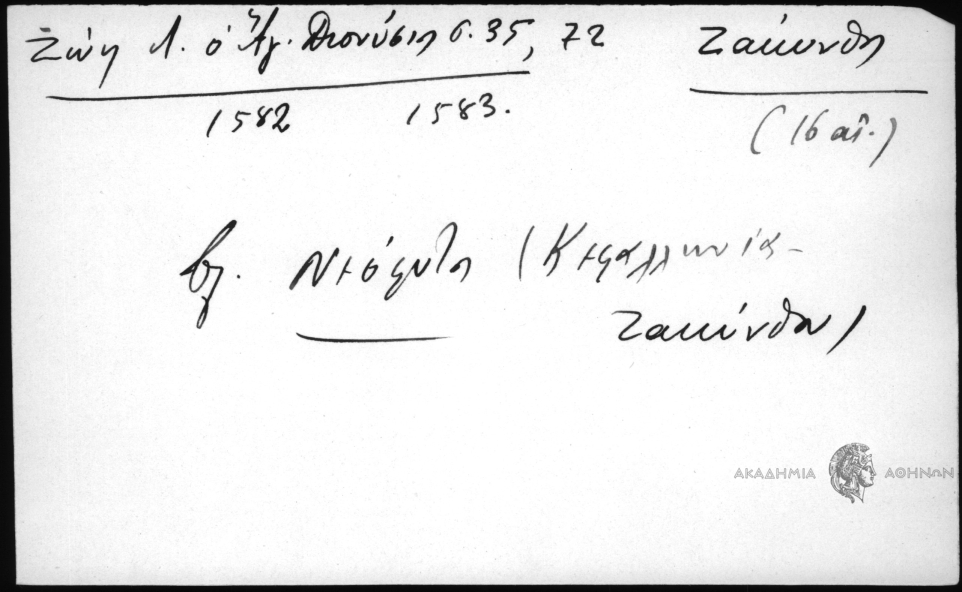 Ζώη Λ. ὁ Ἅγ. Διονύσιος σ. 35, 72 Ζάκυνθος
1582 1583. (16 αἰ.)
βλ. Νεόφυτος (Κεφαλληνία-
Ζακύνθου)
ΑΚΑΔΗΜΙΑ ΑΘΗΝΩΝ